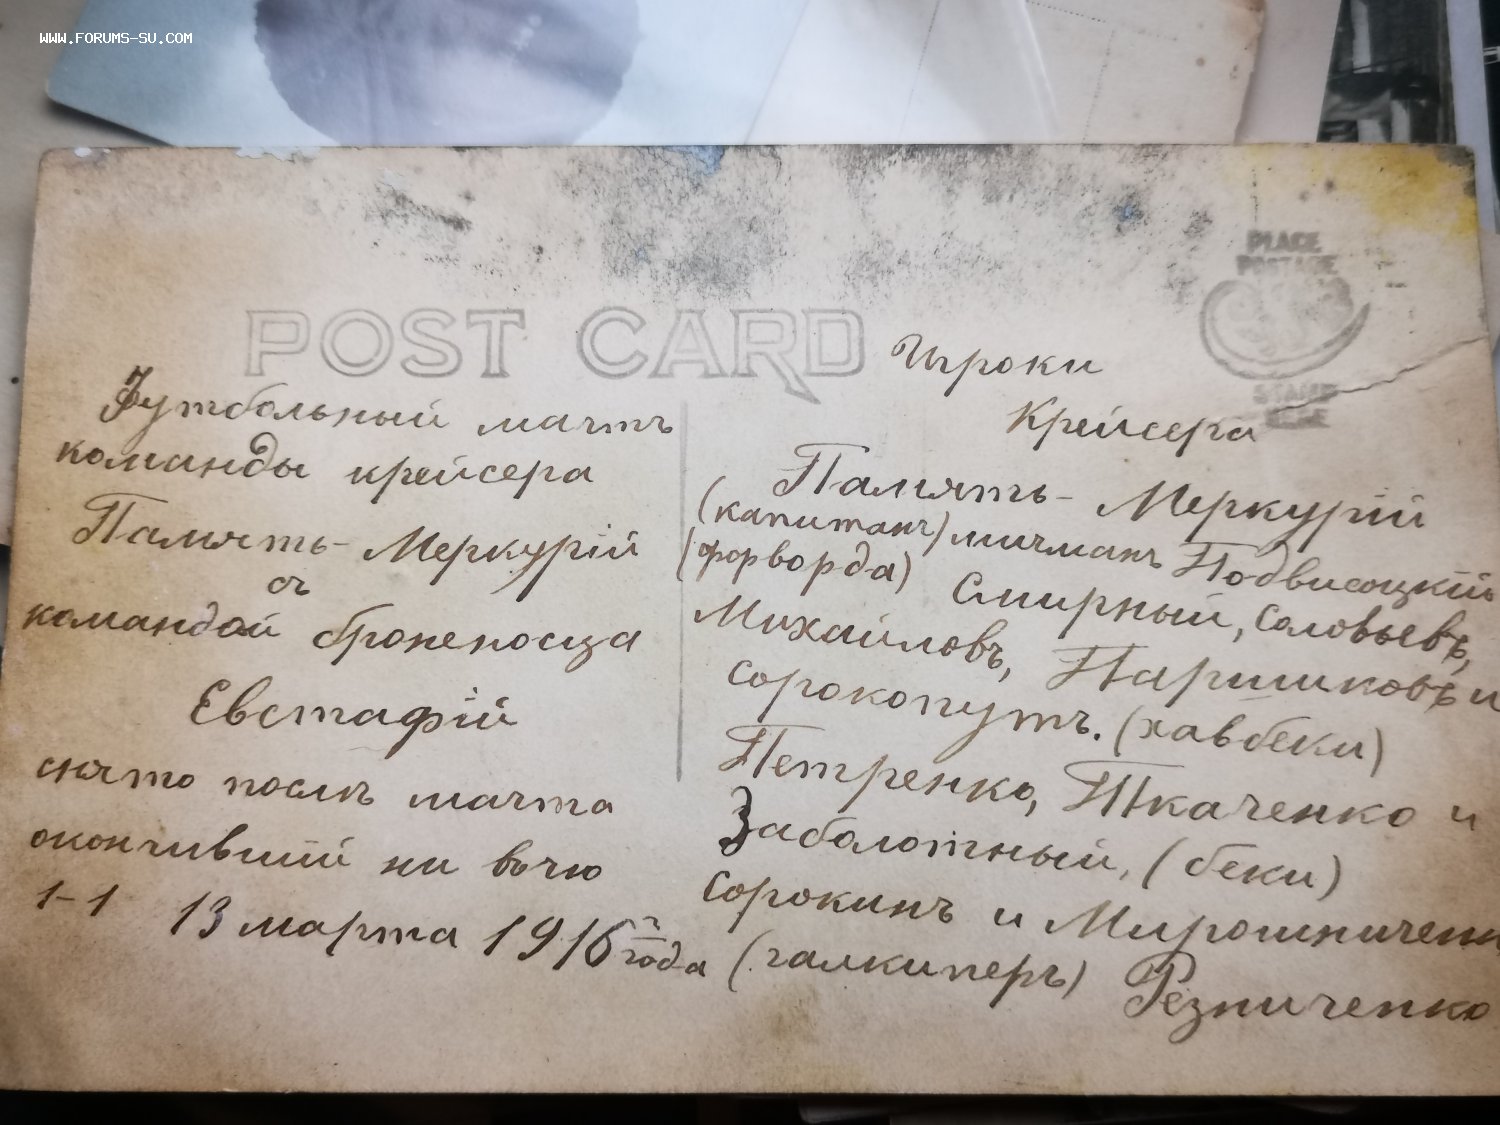 WWW.FORUMS-SU.COM
POST CARD
PLACE
POSTAGE
STAMP
HERE
Футбольный мачтъ
команды крейсера
Память-Меркурій
съ
командой броненосца
Евстафій
снято послѣ мачта
окончившій ни вѣчю
1-1 13 марта 1916 г. года
Игроки
Крейсера
Память-Меркурій
(капитанъ) мичманъ Подвисоцкій
(форворда) Смирный, Соловьевъ,
Михайловъ, Паршиковъ и
Сорокопутъ. (хавбеки)
Петренко, Ткаченко и
Заболотный, (беки)
Сорокинъ и Мирошниченк
(галкиперъ) Резниченко